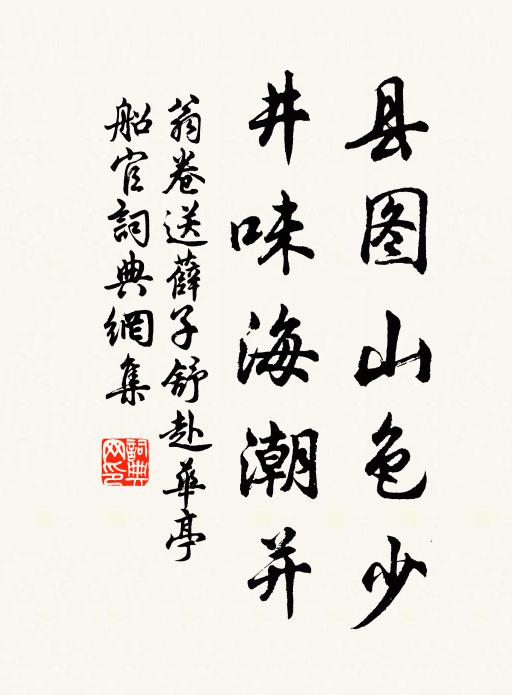 县图山色少
井味海潮并
翁卷送薛子舒赴华亭
船官詞典網集
詞典
网印